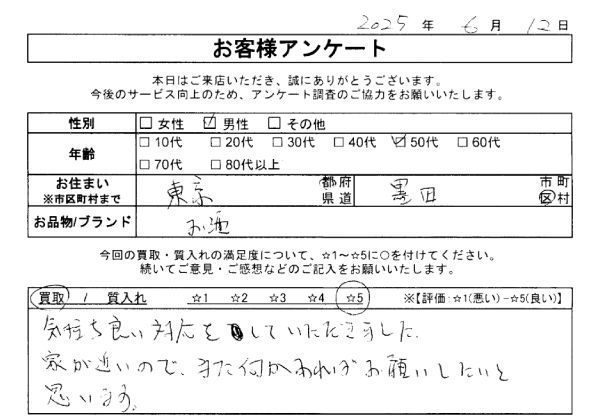 2025 年 6 月 12 日
お客様アンケート
本日はご来店いただき、誠にありがとうございます。
今後のサービス向上のため、アンケート調査のご協力をお願いいたします。
性別 □ 女性 ☑ 男性 □ その他
年齢 □ 10代 □ 20代 □ 30代 □ 40代 ☑ 50代 □ 60代
□ 70代 □ 80代以上
お住まい ※市区町村まで 東京 都府県道 墨田 市町区村
お品物/ブランド お酒
今回の買取・質入れの満足度について、☆1～☆5に○を付けてください。
続いてご意見・ご感想などのご記入をお願いいたします。
買取 / 質入れ ☆1 ☆2 ☆3 ☆4 ☆5 ※【評価:☆1(悪い)-☆5(良い)】
気持ち良い対応をしていただきました。
家が近いので、また何かあればお願いしたいと
思います。